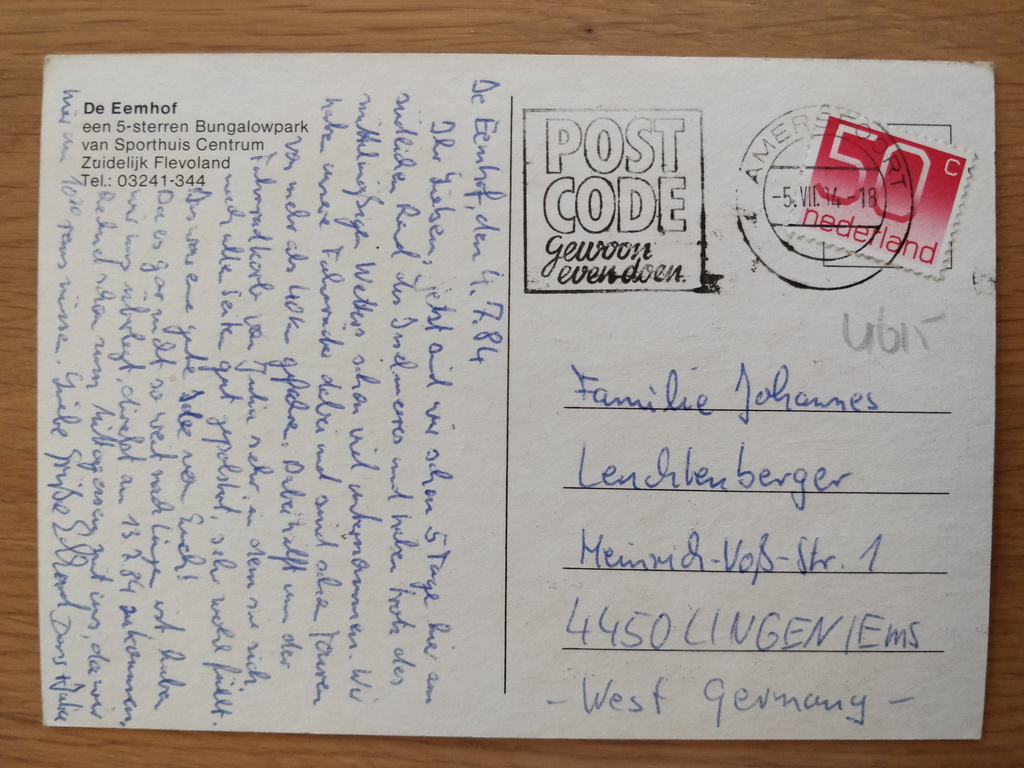 De Eemhof
een 5-sterren Bungalowpark
van Sporthuis Centrum
Zuidelijk Flevoland
Tel.: 03241-344
De Eemhof, den 4.7.84
Ihr Lieben, jetzt sind wir schon 5 Tage hier am
südlichen Rand des Ijsselmeeres und haben trotz des
mittelmäßigen Wetters schon viel unternommen. Wir
haben unsere Fahrräder dabei und sind schon Touren
von mehr als 40 km gefahren. Dabei hilft uns der
Fahrradkorb von Julia sehr, in dem sie sich
nach alle Seite gut gepolstert, sehr wohl fühlt.
Das war eine gute Idee von Euch!
Da es gar nicht so weit nach Lingen ist, haben
wir uns überlegt, direkt am 13.7.84 zu kommen,
schon zum Mittagessen, da wir
hier um 10.00 raus müssen. Liebe Grüße Doris + Julia
POST
CODE
gewoon
even doen.
AMERSFOORT
-5.VII.84-18
50 c
nederland
Familie Johannes
Leuchtenberger
Heinrich-Voß-Str. 1
4450 LINGEN/Ems
- West Germany -